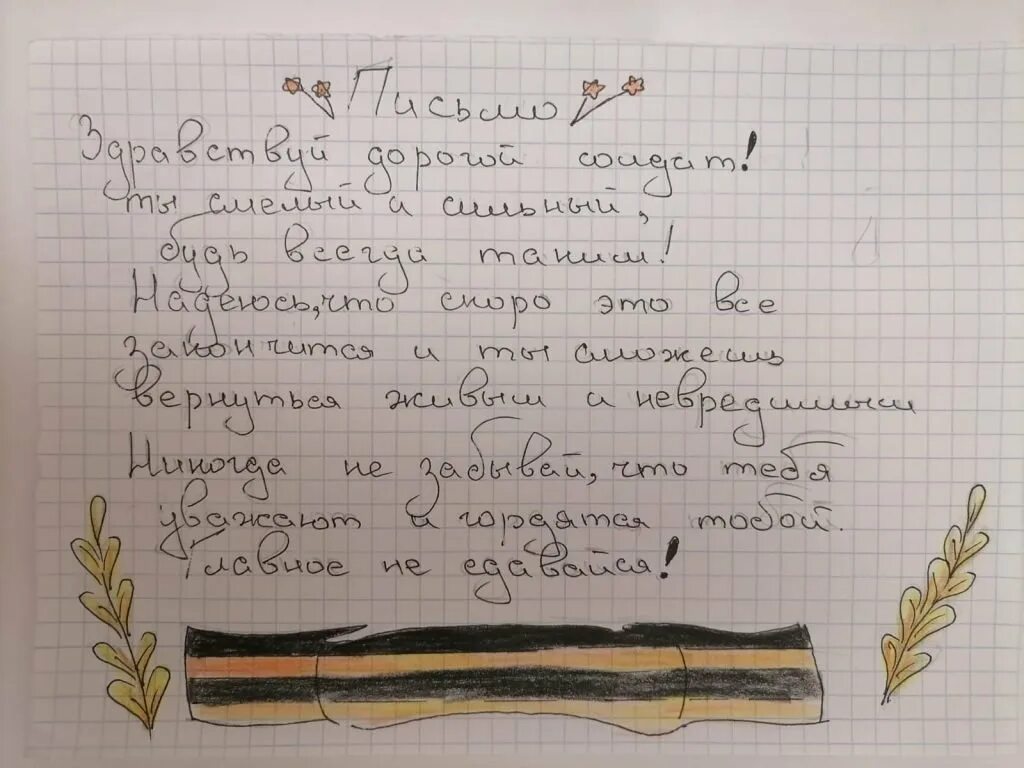 Письмо
Здравствуй дорогой солдат!
ты смелый и сильный,
будь всегда таким!
Надеюсь, что скоро это все
закончится и ты сможешь
вернуться живым и невредимым
Никогда не забывай, что тебя
уважают и гордятся тобой.
Главное не сдавайся!